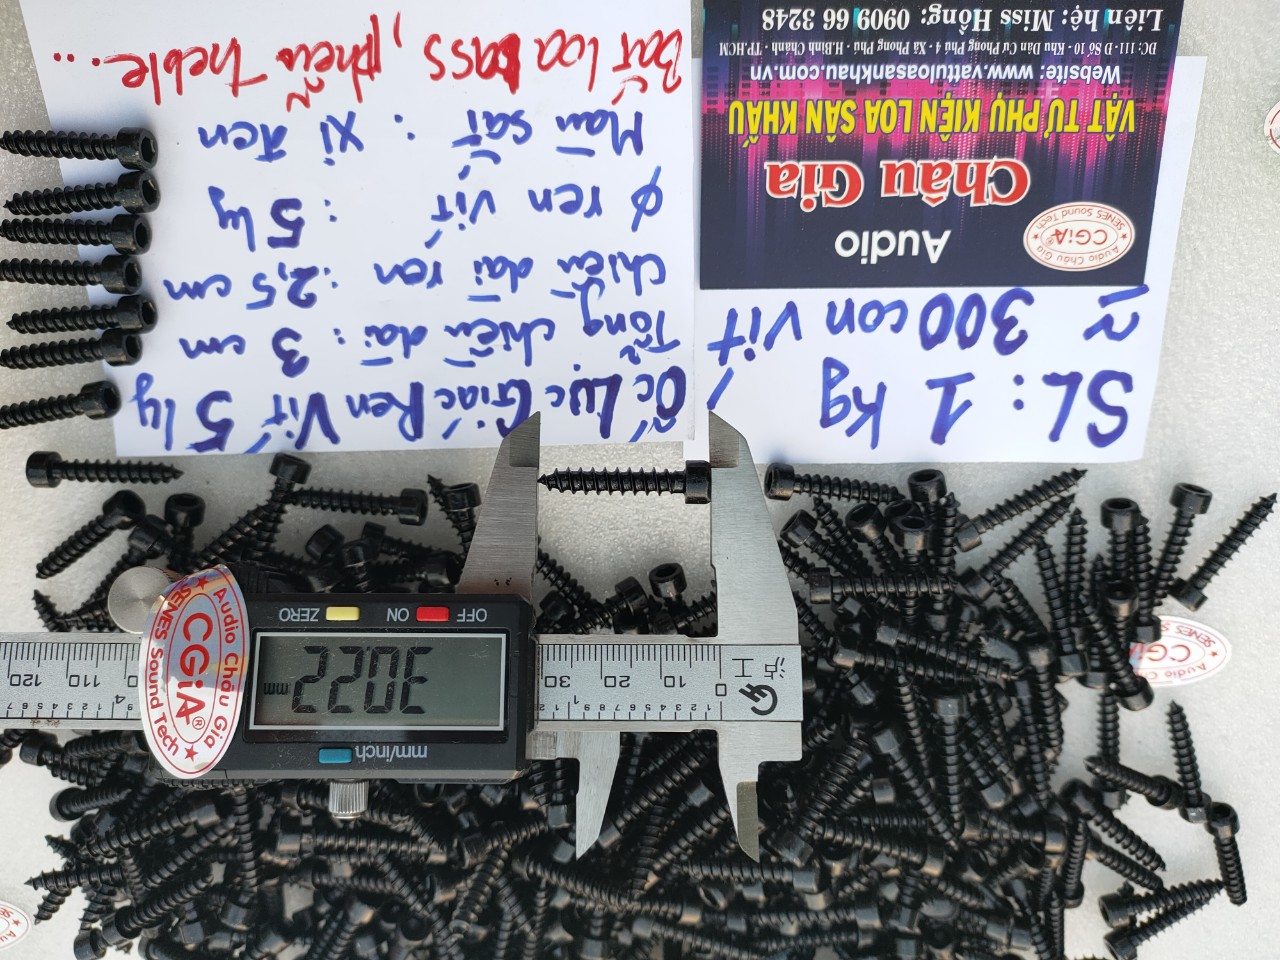 Ốc Lục Giác Ren Vít 5 ly
Tổng chiều dài : 3 cm
Chiều dài ren : 2,5 cm
φ ren vít : 5 ly
Màu sắt : xi đen
Bắt loa bass, phễu treble...
SL : 1 kg
≈ 300 con vít
Audio
Châu Gia
VẬT TƯ PHỤ KIỆN LOA SÂN KHẤU
Website: www.vattuloasankhau.com.vn
ĐC: 111 - D Số 10 - Khu Dân Cư Phong Phú 4 - Xã Phong Phú - H.Bình Chánh - TP.HCM
Liên hệ: Miss Hồng: 0909 66 3248
Audio Châu Gia
CGiA®
SENES Sound Tech
OFF ON ZERO
30.22 mm
mm/inch
Audio Châu Gia
CGiA®
SENES Sound Tech
0 10 20 30 110 120